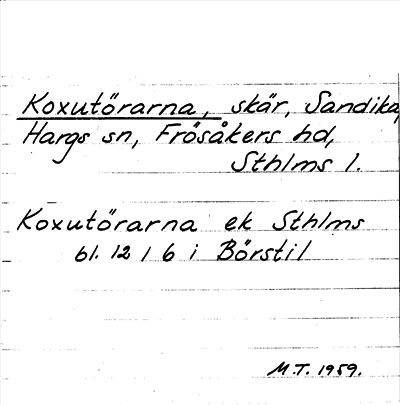 Koxutörarna, skär, Sandika,
Hargs sn, Frösåkers hd,
Sthlms l.
Koxutörarna ek Sthlms
bl. 12 / 6 i Börstil
M.T. 1959.